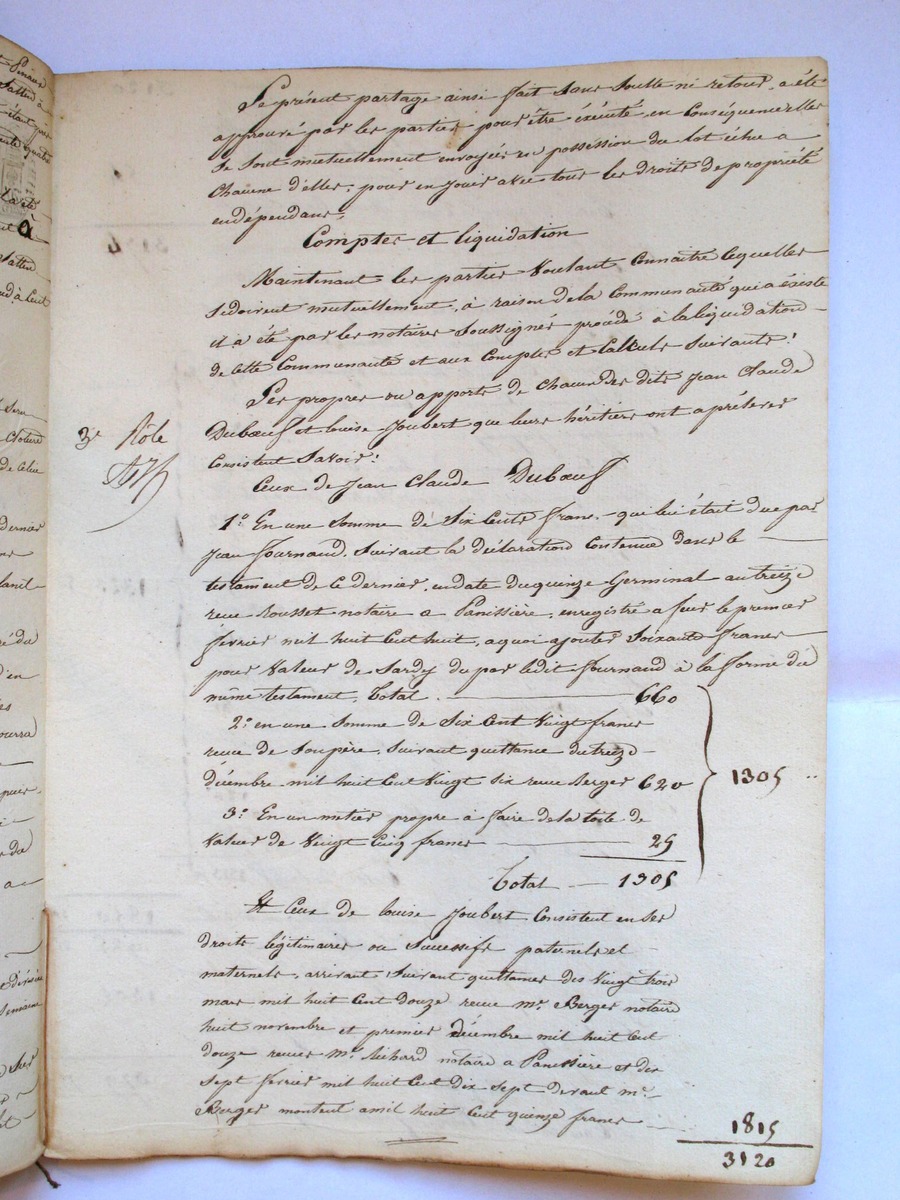 Le présent partage ainsi fait sans soulte ni retour, a été
approuvé par les parties pour être éxécuté, en conséquence elles
se sont mutuellement envoyées en possession du lot échu a
chacune d'elles, pour en jouir avec tous les droits de propriété
endépendans.
Comptes et liquidation
Maintenant les parties voulant connaitre ce quelles
se doivent mutuellement, à raison de la communauté qui a éxisté
il a été par les notaires soussignés procédé à la liquidation
de cette communauté et aux comptes et calculs suivants:
Les propres ou apports de chacun des dits Jean Claude
Dubœuf et louise Joubert que leurs héritiers ont a prélever
consistent savoir:
3e Rôle
Ceux de Jean Claude Dubœuf
1o. En une somme de six cents francs qui lui était due par
Jean Journaud, suivant la déclaration contenue dans le
testament de ce dernier, en date du quinze Germinal an treize
recu Rousset notaire a Panissière, enregistré a feurs le premier
fevrier mil huit cent huit, a quoi ajouter soixante francs
pour valeur de Sardy du par ledit Journaud à la forme du
même testament. Total. 660
2o. en une somme de six cent vingt francs
recue de son père, suivant quittance du treize
décembre mil huit cent vingt six recue Berger 620
1305
3o. En un métier propre à faire de la toile de
valeur de vingt cinq francs 25
Total 1305
Et Ceux de louise Joubert consistent en ses
droits légitimaires ou successifs paternels et
maternels, arrivant suivant quittances des vingt trois
mars mil huit cent douze recue Mr. Berger notaire
huit novembre et premier décembre mil huit cent
douze recues Mr. Richard notaire a Panissière et du
sept fevrier mil huit cent dix sept devant mr.
Berger montent a mil huit cent quinze francs 1815
3120